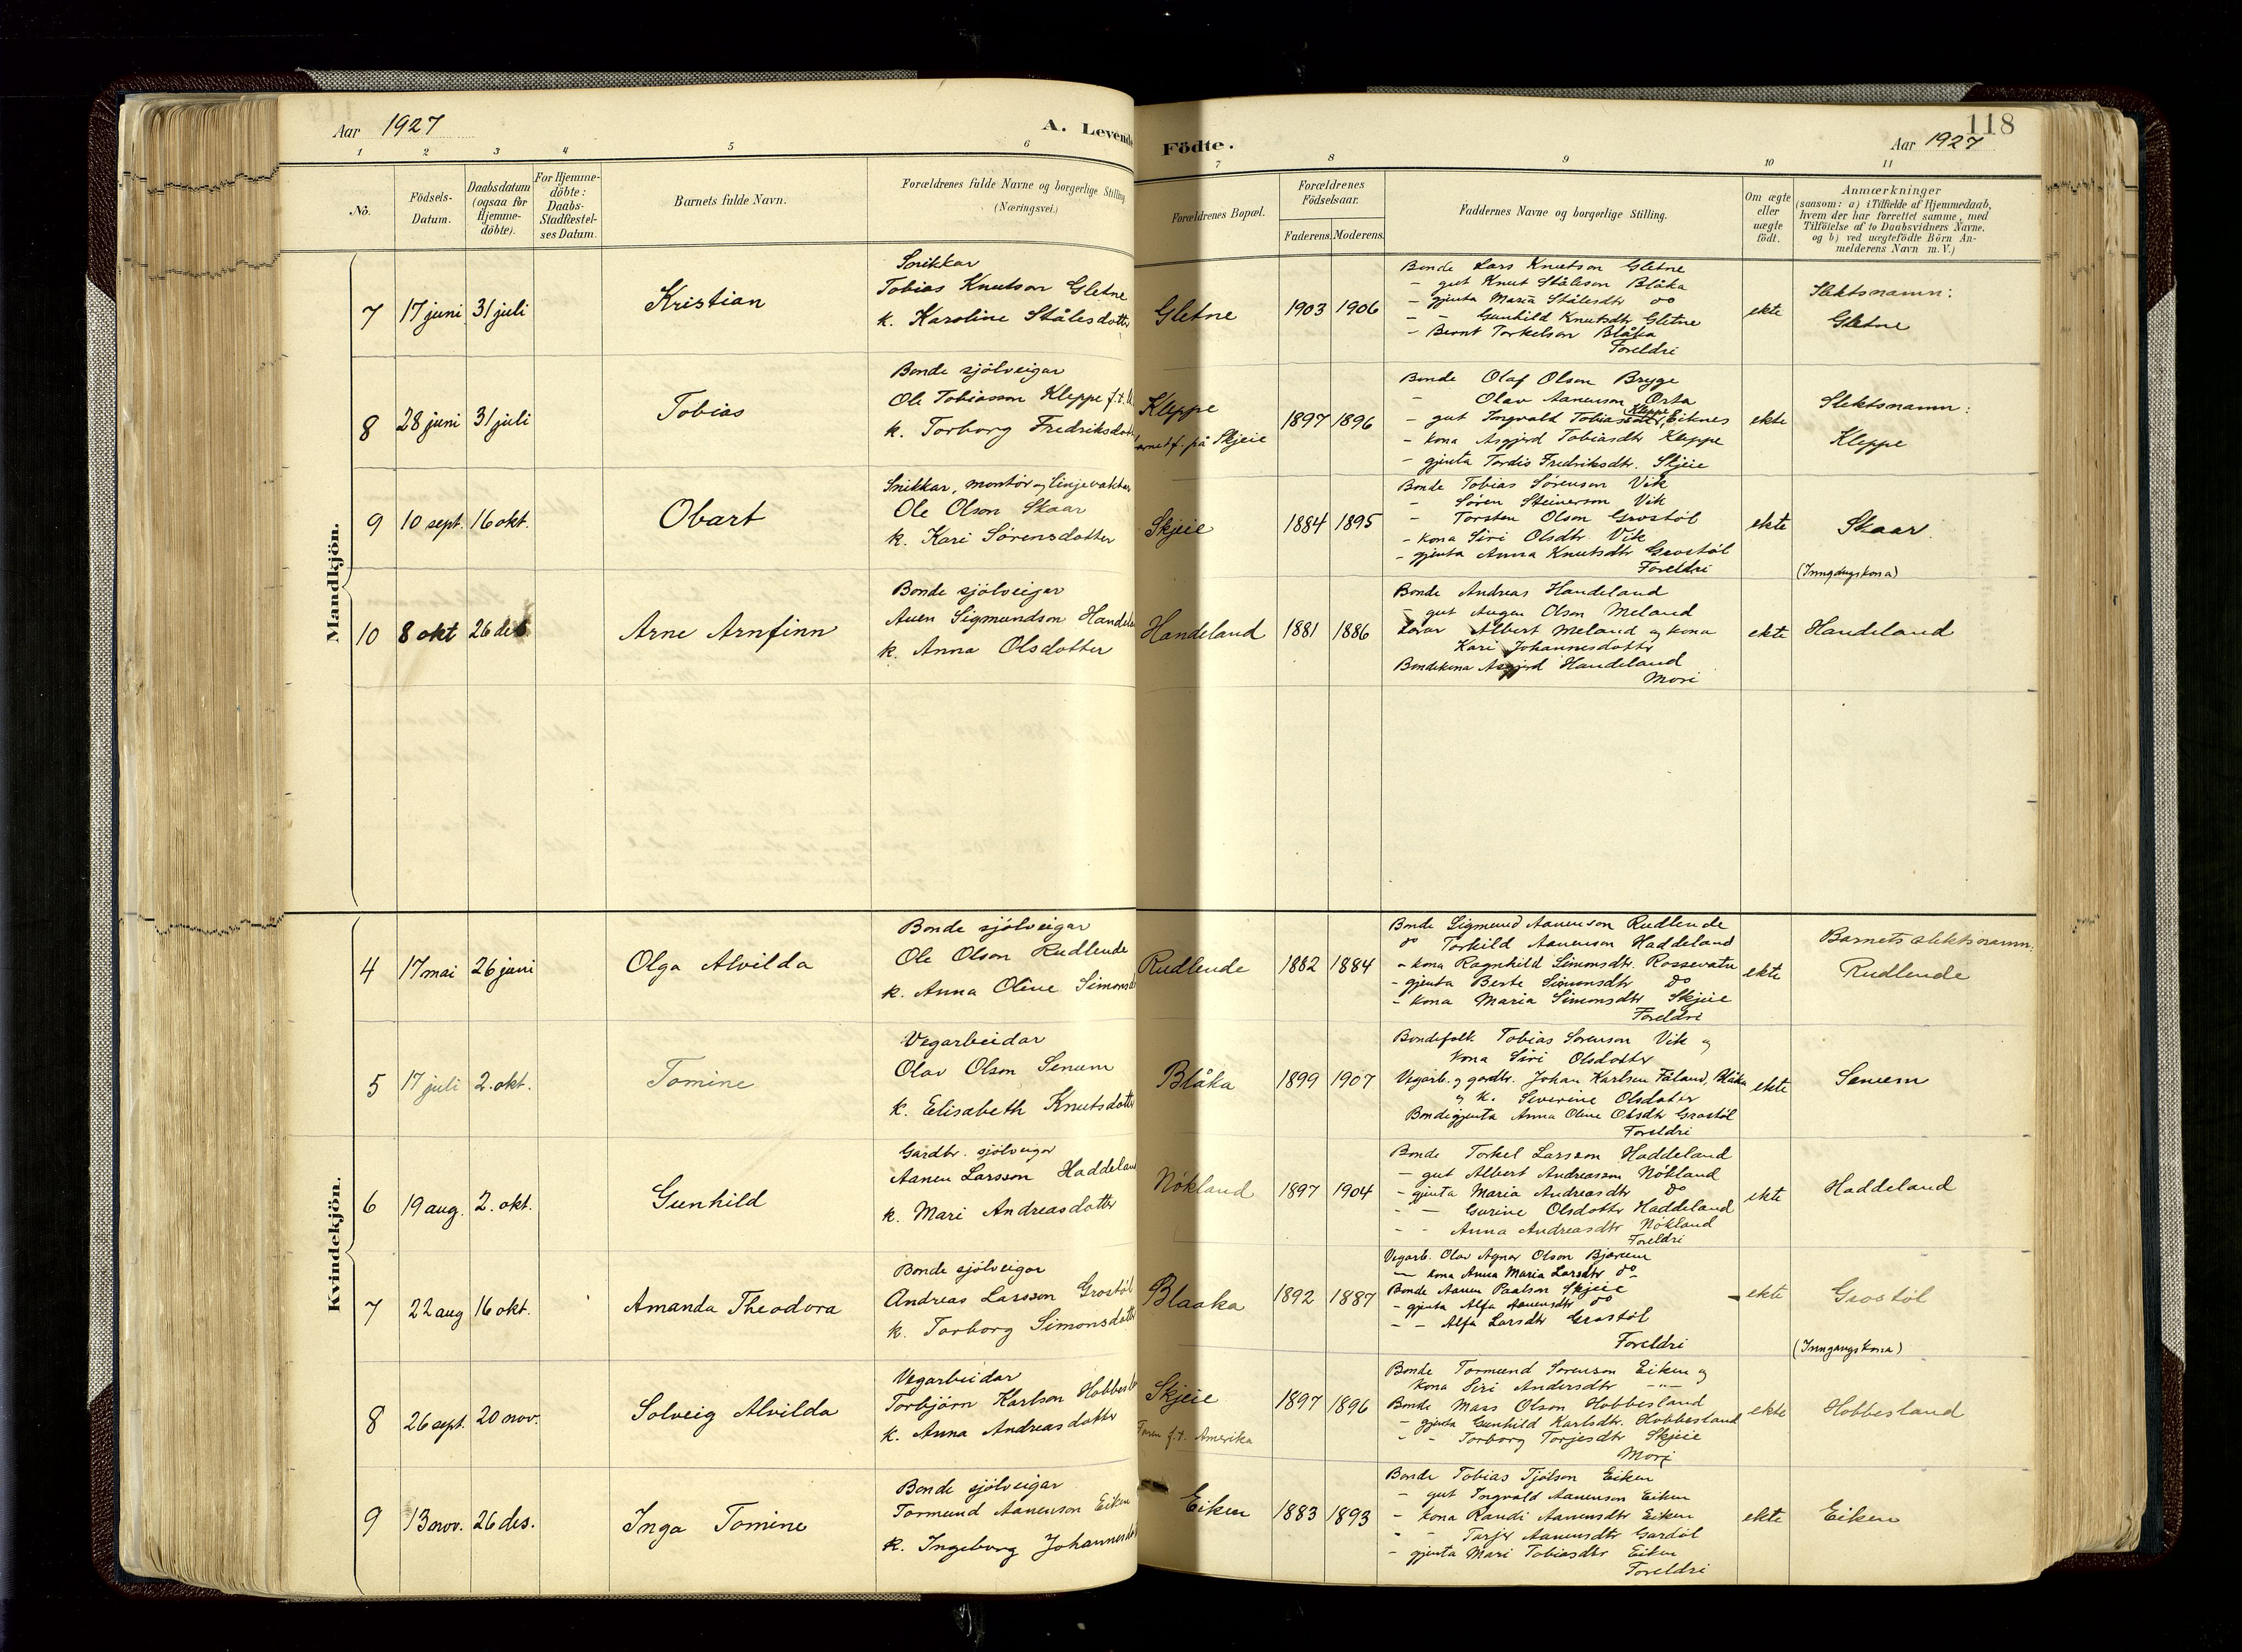 118
Aar 1927
A. Levende
Födte.
Aar 1927
1 2 3 4 5 6 7 8 9 10 11
No.
Födsels-
Datum.
Daabsdatum
(ogsaa for
Hjemme-
döbte).
For Hjemme-
döbte:
Daabs-
Stadfæstel-
ses Datum.
Barnets fulde Navn.
Forældrenes fulde Navne og borgerlige Stilling
(Næringsvei.)
Forældrenes Bopæl.
Forældrenes
Födselsaar.
Faderens. Moderens.
Faddernes Navne og borgerlige Stilling.
Om ægte
eller
uægte
födt.
Anmærkninger
(saasom: a) i Tilfælde af Hjemmedaab,
hvem der har forrettet samme, med
Tilföielse af to Daabsvidners Navne,
og b) ved uægtefödte Börn An-
melderens Navn m. V.)
Mandkjön.
7 17 juni 31 juli
Kristian
Snikkar
Tobias Knutson Gletne
k. Karoline Stålesdotter
Gletne
1903 1906
Bonde Lars Knutson Gletne
- gut Knut Ståleson Blåka
- gjenta Maria Stålesdtr do
- - Gunhild Knutsdtr Gletne
- Bernt Torkelson Blåka
Foreldri
ekte
Slektsnamn:
Gletne
8 28 juni 31 juli
Tobias
Bonde sjölveigar
Ole Tobiasson Kleppe f.t.
k. Torborg Fredriksdott
Kleppe
f. på Skjeie
1897 1896
Bonde Olaf Olson Bryge
- Olav Aanenson Orta
- gut Ingvald Tobiasson Kleppe, Eiknes
- kona Asgjerd Tobiasdtr Kleppe
- gjenta Tordis Fredriksdtr. Skjeie
ekte
Slektsnamn:
Kleppe
9 10 sept. 16 okt.
Obart
Snikkar, montör og linjevaktar
Ole Olson Skaar
k. Kari Sørensdotter
Skjeie
1884 1895
Bonde Tobias Sørenson Vik
- Søren Steinerson Vik
- Torsten Olson Grostøl
- kona Siri Olsdtr Vik
- gjenta Anna Knutsdtr Grostöl
Foreldri
ekte
Skaar
(Inngangskona)
10 8 okt 26 des
Arne Arnfinn
Bonde sjölveigar
Anen Sigmundson Handela
k. Anna Olsdotter
Handeland
1881 1886
Bonde Andreas Handeland
- gut Augen Olson Meland
Lærar Albert Meland og kona
Kari Johannesdotter
Bondekona Asgjerd Handeland
Mori
ekte
Handeland
Kvindekjön.
4 17 mai 26 juni
Olga Alvilda
Bonde sjölveigar
Ole Olson Rudlende
k. Anna Oline Simonsd
Rudlende
1882 1884
Bonde Sigmund Aanenson Rudlende
do Torkild Aanenson Haddeland
- kona Ragnhild Simonsdtr. Rossevatn
- gjenta Berte Simonsdtr do
- kona Maria Simonsdtr Skjeie
Foreldri
ekte
Barnets slektsnamn:
Rudlende
5 17 juli 2. okt.
Tomine
Vegarbeidar
Olav Olson Senum
k. Elisabeth Knutsdotter
Blåka
1899 1907
Bondefolk Tobias Sørenson Vik og
kona Siri Olsdotter
Vegarb. og gardbr. Johan Karlsen Fåland, Blåka
og k. Severine Olsdotter
Bondegjenta Anna Oline Olsdtr Grostöl
Foreldri
ekte
Senum
6 19 aug. 2. okt.
Gunhild
Gardbr. sjölveigar
Aanen Larsson Haddeland
k. Mari Andreasdotter
Nökland
1897 1904
Bonde Torkel Larsson Haddeland
- gut Albert Andreasson Nökland
- gjenta Maria Andreasdtr do
- - Gurine Olsdotter Haddeland
- - Anna Andreasdtr Nökland
Foreldri
ekte
Haddeland
7 22 aug 16 okt.
Amanda Theodora
Bonde sjölveigar
Andreas Larsson Grostöl
k. Torborg Simonsdotter
Blaaka
1892 1887
Vegarb. Olav Agnar Olson Bjærum
- kona Anna Maria Larsdtr do
Bonde Aanen Paalson Skjeie
- gjenta Alfa Aanensdtr do
- - Alfa Larsdtr Grostöl
Foreldri
- ekte
Grostöl
(Inngangskona)
8 26 sept. 20 nov.
Solveig Alvilda
Vegarbeidar
Torbjörn Karlson Hobbesla
k. Anna Andreasdotter
Skjeie
Faren f.t. Amerika
1897 1896
Bonde Tormund Sørenson Eiken og
kona Siri Andersdtr -"-
Bonde Mass Olson Hobbesland
- gjenta Gunhild Karlsdtr. Hobbesland
- - Torborg Torjesdtr Skjeie
Mori
ekte
Hobbesland
9 13 nov. 26 des.
Inga Tomine
Bonde sjölveigar
Tormund Aanenson Eiken
k. Ingeborg Johannesdot
Eiken
1883 1893
Bonde Tobias Tjölson Eiken
- gut Ingvald Aanenson Eiken
- kona Randi Aanensdtr Eiken
- - Tarjer Aanensdtr Gardöl
- gjenta Mari Tobiasdtr Eiken
Foreldri
ekte
Eiken